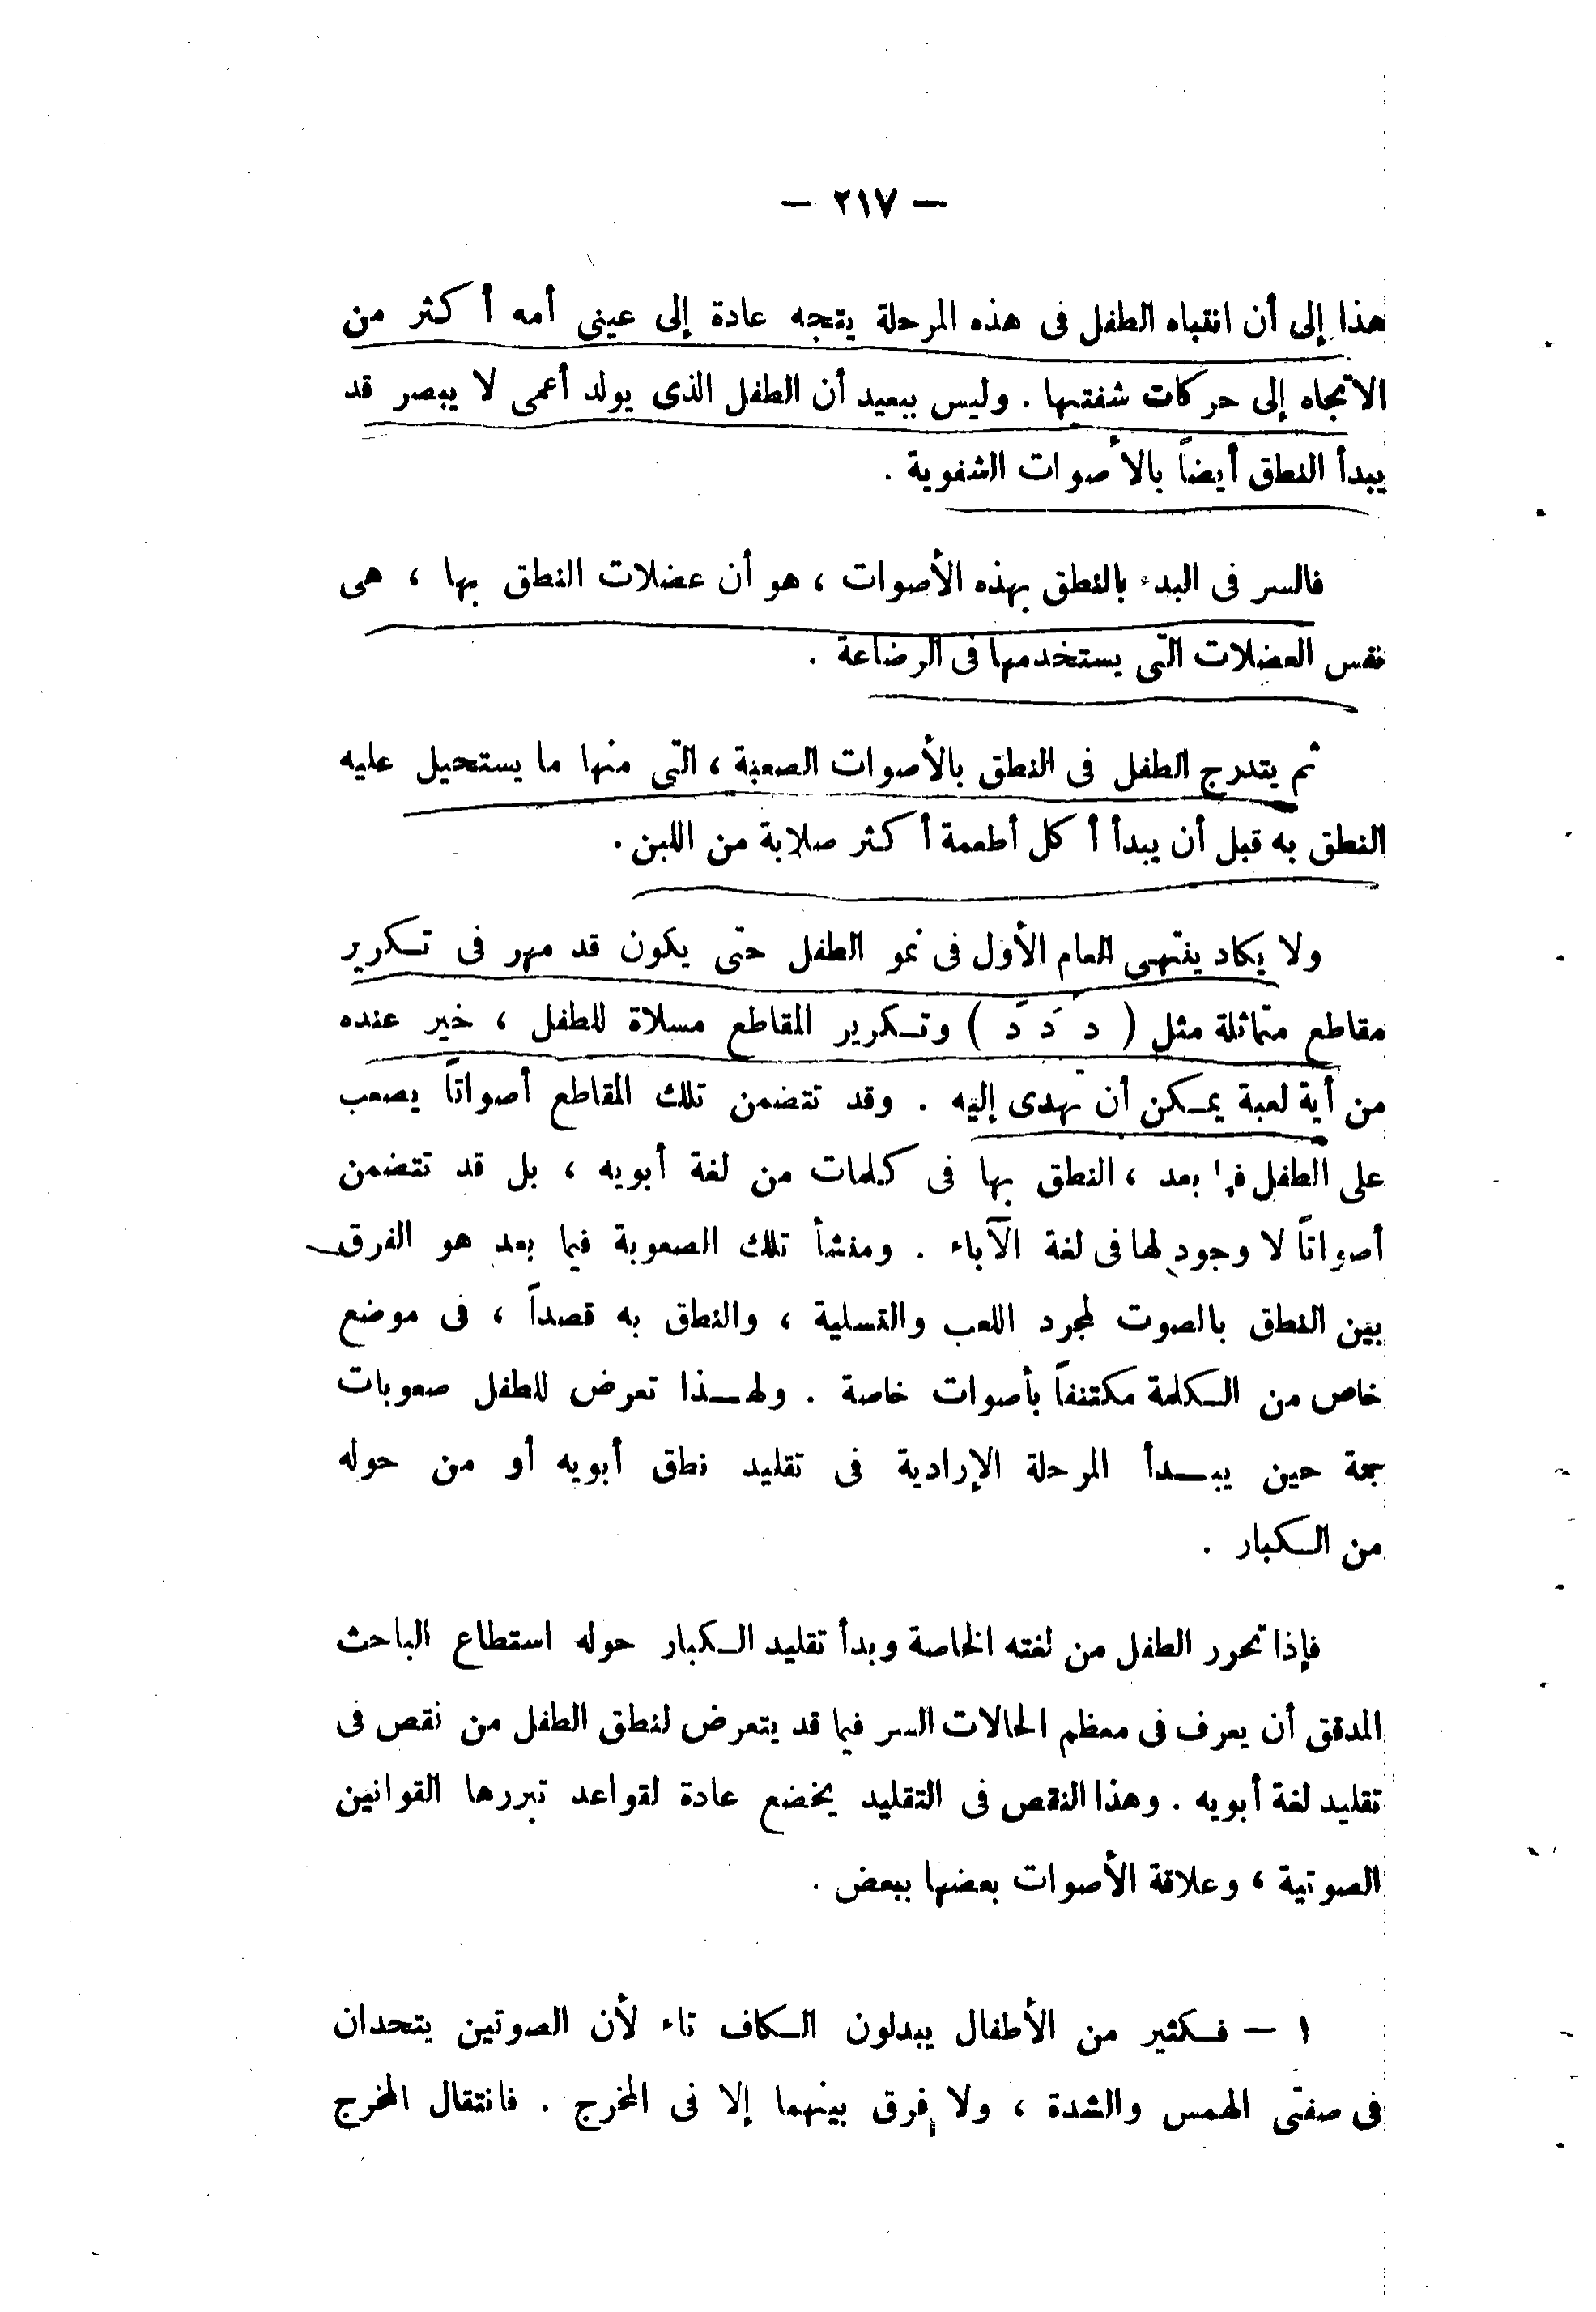 — ٢١٧ —
هذا إلى أن انتباه الطفل فى هذه المرحلة يتجه عادة إلى عينى أمه أكثر من
الاتجاه إلى حركات شفتيها . وليس ببعيد أن الطفل الذى يولد أعمى لا يبصر قد
يبدأ النطق أيضاً بالأصوات الشفوية .
فالسر فى البدء بالنطق بهذه الأصوات ، هو أن عضلات النطق بها ، هى
نفس العضلات التى يستخدمها فى الرضاعة .
ثم يتدرج الطفل فى النطق بالأصوات الصعبة ، التى منها ما يستحيل عليه
النطق به قبل أن يبدأ أكل أطعمة أكثر صلابة من اللبن .
ولا يكاد ينتهى العام الأول فى نمو الطفل حتى يكون قد مهر فى تكرير
مقاطع متماثلة مثل ( دَ دَ دَ ) وتكرير المقاطع مسلاة للطفل ، خير عنده
من أية لعبة يمكن أن تهدى إليه . وقد تتضمن تلك المقاطع أصواتاً يصعب
على الطفل فيما بعد ، النطق بها فى كلمات من لغة أبويه ، بل قد تتضمن
أصواتاً لا وجود لها فى لغة الآباء . ومنشأ تلك الصعوبة فيما بعد هو الفرق
بين النطق بالصوت لمجرد اللعب والتسلية ، والنطق به قصداً ، فى موضع
خاص من الكلمة مكتنفاً بأصوات خاصة . ولهذا تعرض للطفل صعوبات
جمة حين يبدأ المرحلة الإرادية فى تقليد نطق أبويه أو من حوله
من الكبار .
فإذا تحرر الطفل من لغته الخاصة وبدأ تقليد الكبار حوله استطاع الباحث
المدقق أن يعرف فى معظم الحالات السر فيما قد يتعرض لنطق الطفل من نقص فى
تقليد لغة أبويه . وهذا النقص فى التقليد يخضع عادة لقواعد تبررها القوانين
الصوتية ، وعلاقة الأصوات بعضها ببعض .
١ — فكثير من الأطفال يبدلون الكاف تاء لأن الصوتين يتحدان
فى صفتى الهمس والشدة ، ولا فرق بينهما إلا فى المخرج . فانتقال المخرج